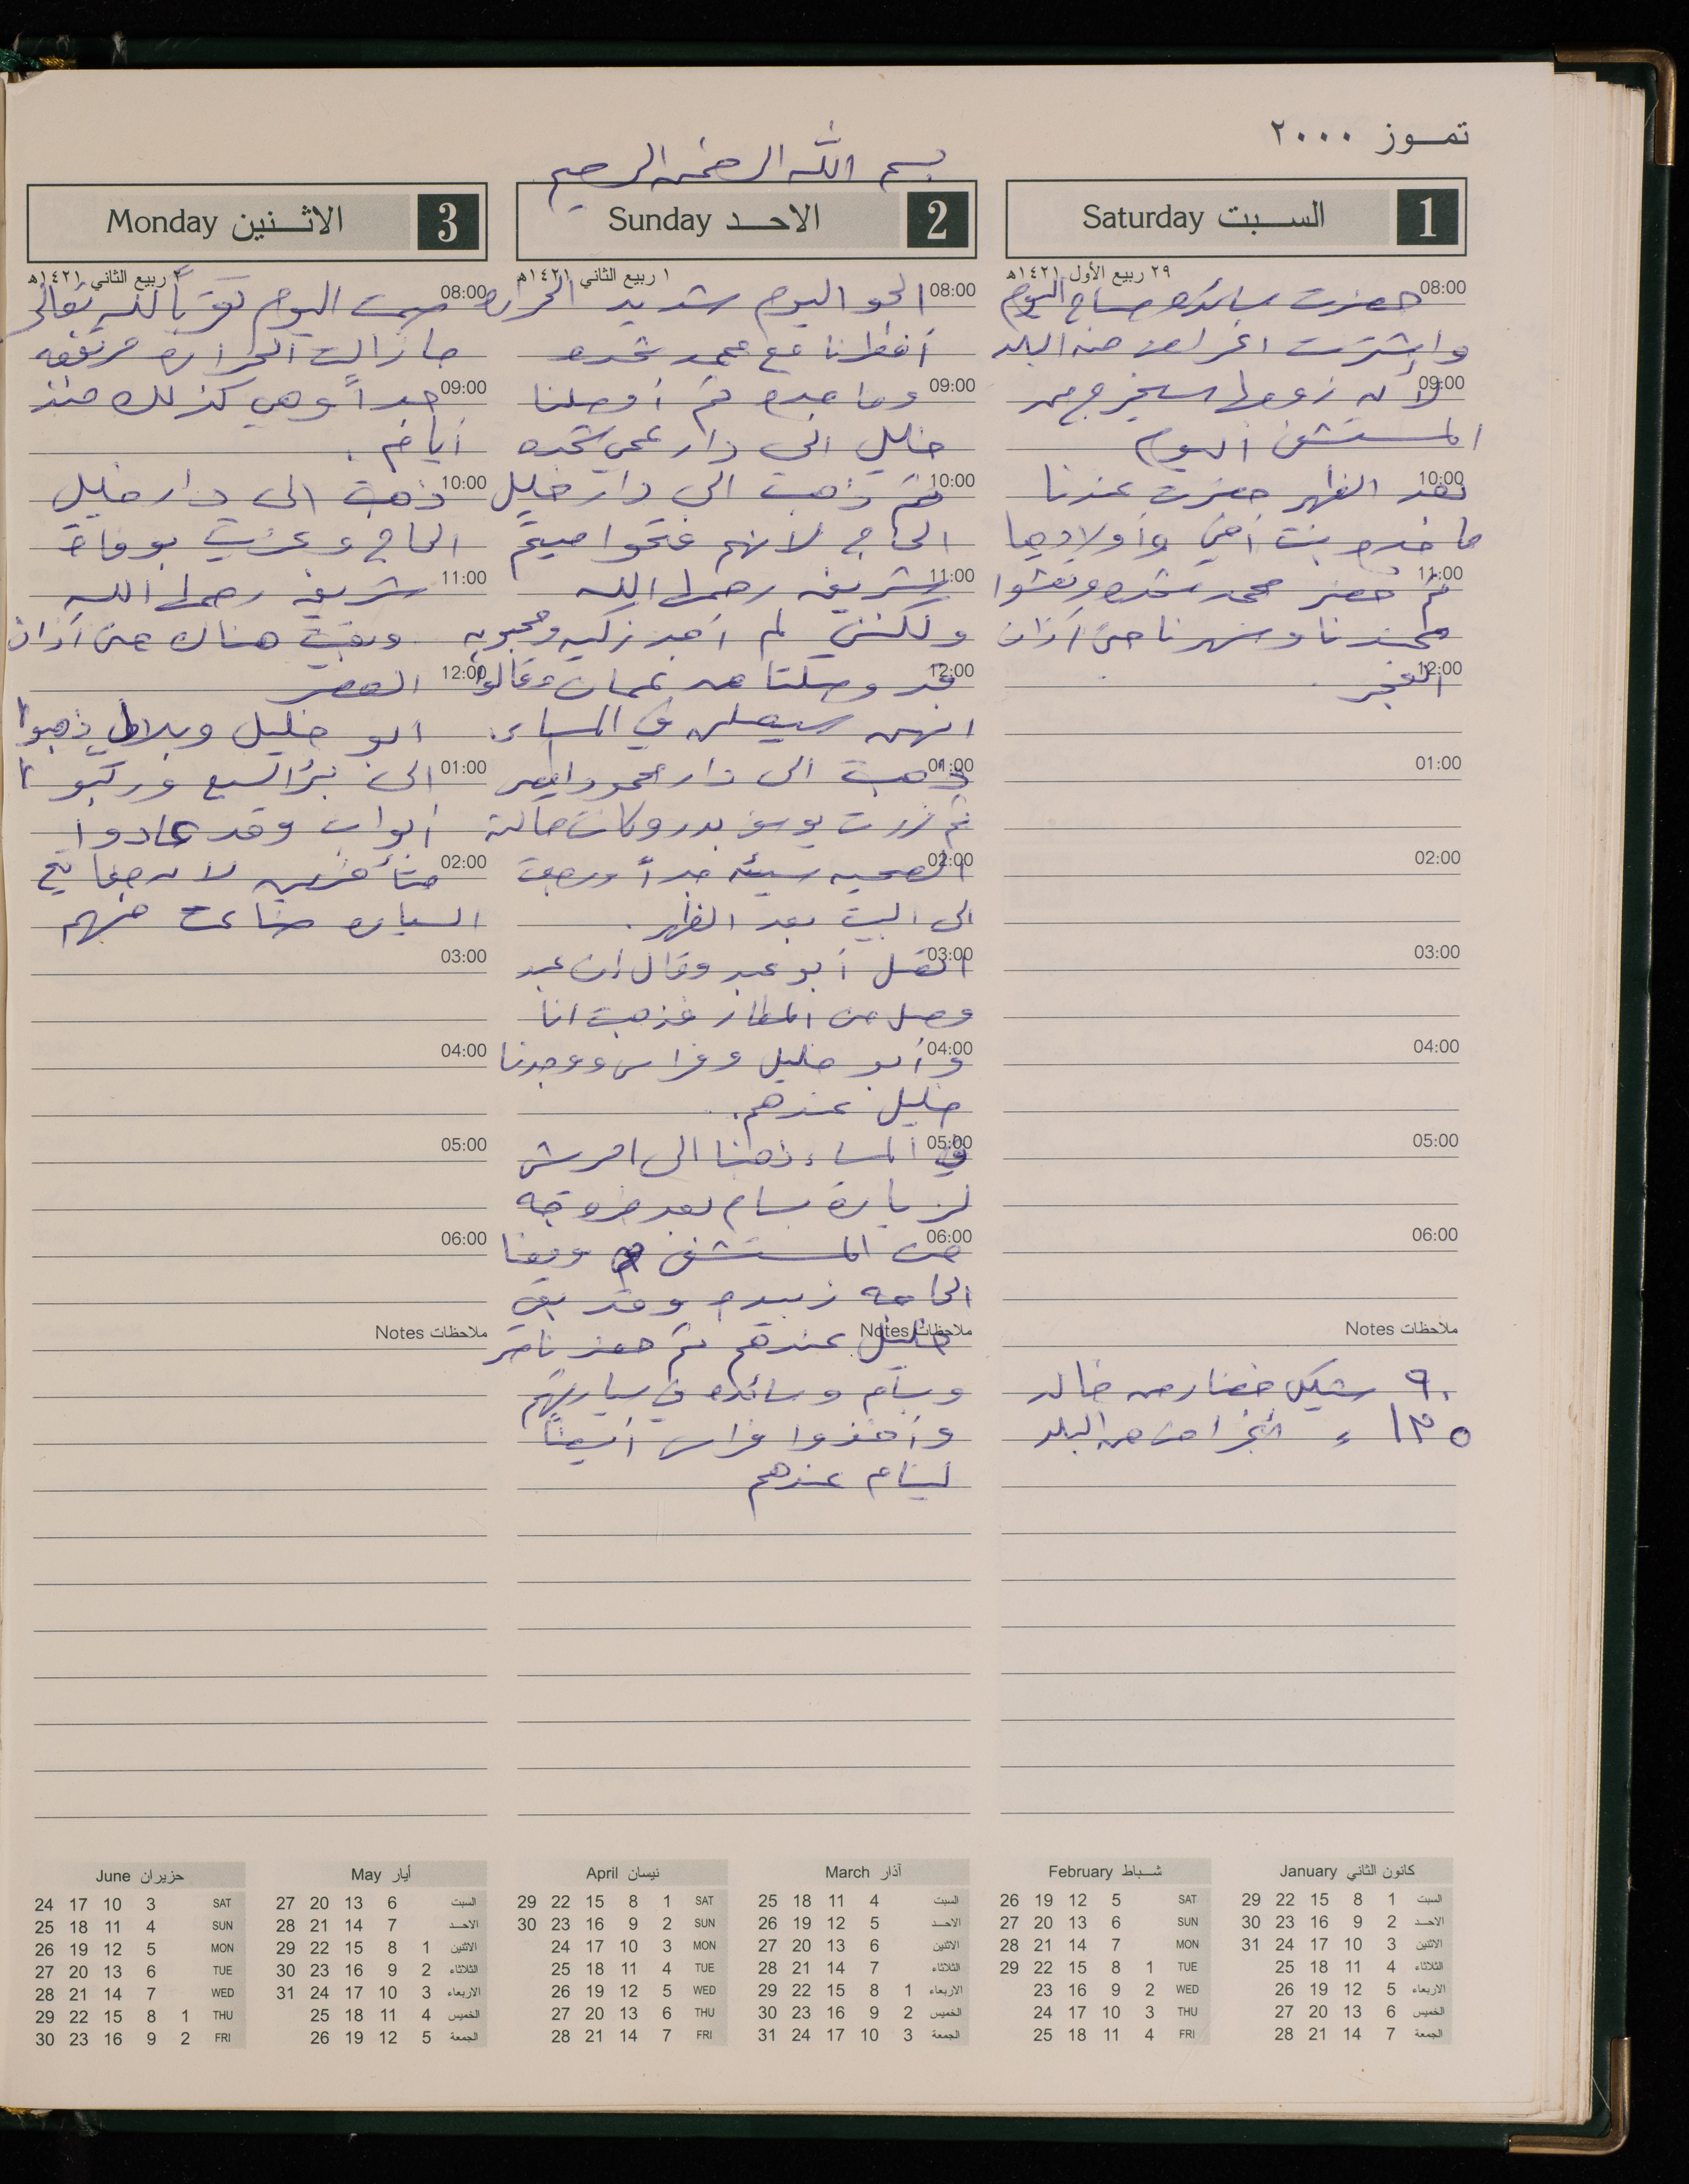 تموز ٢٠٠٠
بسم الله الرحمن الرحيم
السبت Saturday 1
٢٩ ربيع الأول ١٤٢١هـ
08:00 حضرت سائده صباح اليوم
واشترت اغراض من البلد
09:00 لأن زوجها سيخرج من
المستشفى اليوم
10:00 بعد الظهر حضرت عندنا
ماجده بنت أختي وأولادها
11:00 ثم حضر محمد شحده وتعشوا
عندنا وسهرنا حتى آذان
12:00 الفجر.
01:00
02:00
03:00
04:00
05:00
06:00
ملاحظات Notes
٩٠ شيكل خضار من خالد
١٣٥ ، أغراض من البلد
الاحد Sunday 2
١ ربيع الثاني ١٤٢١هـ
08:00 الجو اليوم شديد الحراره
أفطرنا مع محمد شحده
09:00 وماجده ثم أوصلنا
خليل الى دار عمي شحده
10:00 ثم ذهبت الى دار خليل
الحاج لانهم فتحوا ميتم
11:00 شريفه رحمها الله
ولكنني لم أجد زكيه ومحبوبه
12:00 قد وصلتا من عمان وقالوا
انهن سيصلن في المساء.
01:00 ذهبت الى دار محمود
ثم زرت يوسف بدر وكانت حالته
02:00 الصحيه سيئه جداً ورجعت
الى البيت بعد الظهر.
03:00 اتصل أبو عبد وقال ان عبد
وصل من المطار فذهبت انا
04:00 وأبو خليل وفراس ووجدنا
خليل عندهم.
05:00 في المساء ذهبنا الى
لزيارة بسام بعد خروجه
06:00 من المستشفى ومعنا
الحاجه زبيده وقد بقي
ملاحظات Notes خليل عندهم ثم حضر ناصر
وبسام وسائده في سيارتهم
وأخذوا فراس أيضاً
لينام عندهم
الاثنين Monday 3
٢ ربيع الثاني ١٤٢١هـ
08:00 صمت اليوم تقرباً لله تعالى
ما زالت الحراره مرتفعه
09:00 جداً وهي كذلك منذ
أيام.
10:00 ذهبت الى دار خليل
الحاج وعزيت بوفاة
11:00 شريفه رحمها الله
وبقيت هناك حتى آذان
12:00 العصر
ابو خليل وبلال ذهبوا
01:00 الى بئر السبع وركبوا
أبواب وقد عادوا
02:00 متأخرين لان مفاتيح
السياره ضاعت منهم
03:00
04:00
05:00
06:00
ملاحظات Notes
كانون الثاني January
السبت 1 8 15 22 29
الاحد 2 9 16 23 30
الاثنين 3 10 17 24 31
الثلاثاء 4 11 18 25
الاربعاء 5 12 19 26
الخميس 6 13 20 27
الجمعة 7 14 21 28
شباط February
SAT 5 12 19 26
SUN 6 13 20 27
MON 7 14 21 28
TUE 1 8 15 22 29
WED 2 9 16 23
THU 3 10 17 24
FRI 4 11 18 25
آذار March
السبت 4 11 18 25
الاحد 5 12 19 26
الاثنين 6 13 20 27
الثلاثاء 7 14 21 28
الاربعاء 1 8 15 22 29
الخميس 2 9 16 23 30
الجمعة 3 10 17 24 31
نيسان April
SAT 1 8 15 22 29
SUN 2 9 16 23 30
MON 3 10 17 24
TUE 4 11 18 25
WED 5 12 19 26
THU 6 13 20 27
FRI 7 14 21 28
أيار May
السبت 6 13 20 27
الاحد 7 14 21 28
الاثنين 1 8 15 22 29
الثلاثاء 2 9 16 23 30
الاربعاء 3 10 17 24 31
الخميس 4 11 18 25
الجمعة 5 12 19 26
حزيران June
SAT 3 10 17 24
SUN 4 11 18 25
MON 5 12 19 26
TUE 6 13 20 27
WED 7 14 21 28
THU 1 8 15 22 29
FRI 2 9 16 23 30